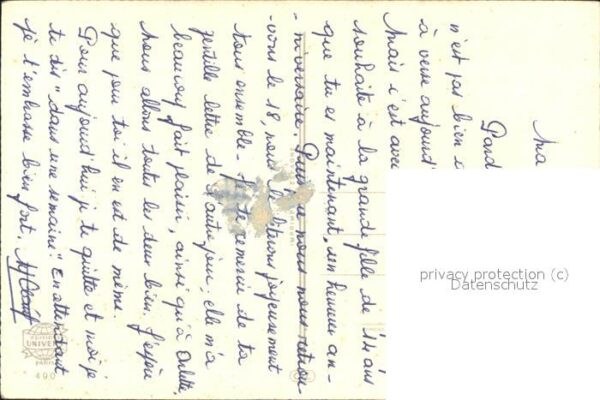 Ma
Pard
n'est pas bien
à veux aujourd'
Mais c'est avec
souhaite à la grande fille de 14 ans
que tu es maintenant, un heureux an-
-niversaire. Puisque nous nous retrou-
-vons le 18, nous le fêterons joyeusement
tous ensemble - Je te remercie de ta
gentille lettre de l'autre jour, elle m'a
beaucoup fait plaisir, ainsi qu'à Odette,
nous allons toutes les deux bien. J'espère
que pour toi il en est de même.
Pour aujourd'hui je te quitte et moi je
te dis "dans une semaine". En attendant
je t'embrasse bien fort.
privacy protection (c)
Datenschutz
UNIVER
PARIS
490